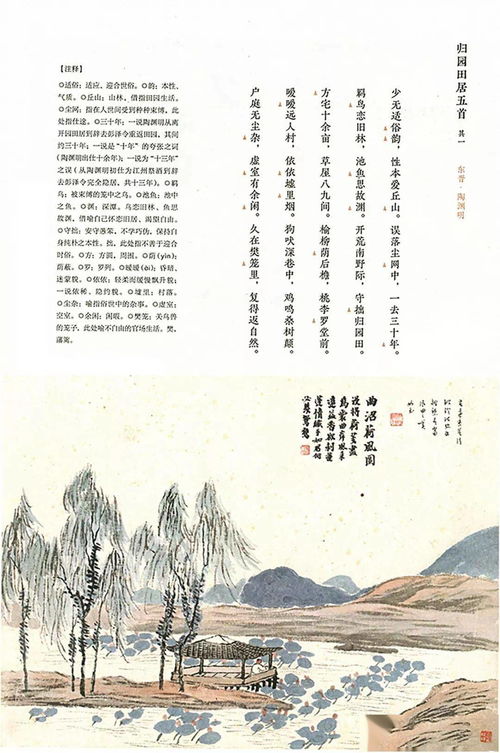 归园田居五首 其一
东晋·陶渊明
少无适俗韵，性本爱丘山。误落尘网中，一去三十年。
羁鸟恋旧林，池鱼思故渊。开荒南野际，守拙归园田。
方宅十余亩，草屋八九间。榆柳荫后檐，桃李罗堂前。
暧暧远人村，依依墟里烟。狗吠深巷中，鸡鸣桑树颠。
户庭无尘杂，虚室有余闲。久在樊笼里，复得返自然。
【注释】
◎适俗：适应、迎合世俗。◎韵：本性、
气质。◎丘山：山林，借指田园生活。
◎尘网：指在人世间受到种种束缚，此
处指仕途。◎三十年：一说陶渊明从离
开园田居到辞去彭泽令重返园田，其间
约三十年；一说是“十年”的夸张之词
（陶渊明出仕十余年）；一说为“十三年”
之误（从陶渊明初仕为江州祭酒到辞
去彭泽令完全隐居，共十三年）。◎羁
鸟：被束缚的笼中之鸟。◎池鱼：池中
之鱼。◎渊：深潭。鸟恋旧林、鱼思
故渊，借喻自己怀恋旧居、渴望自由。
◎守拙：安守愚笨，不学巧伪，保持自
身纯朴之本性。拙，此处指不善于迎合
时俗。◎方：方圆，周围。◎荫(yìn)：
荫蔽。◎罗：罗列。◎暧暧(ài)：昏暗、
迷蒙貌。◎依依：轻柔而缓慢飘升貌；
一说依稀、隐约貌。◎墟里：村落。
◎尘杂：喻指俗世中的杂事。◎虚室：
空室。◎余闲：闲暇。◎樊笼：关鸟兽
的笼子，此处喻不自由的官场生活。樊，
藩篱。
曲沼荷风图